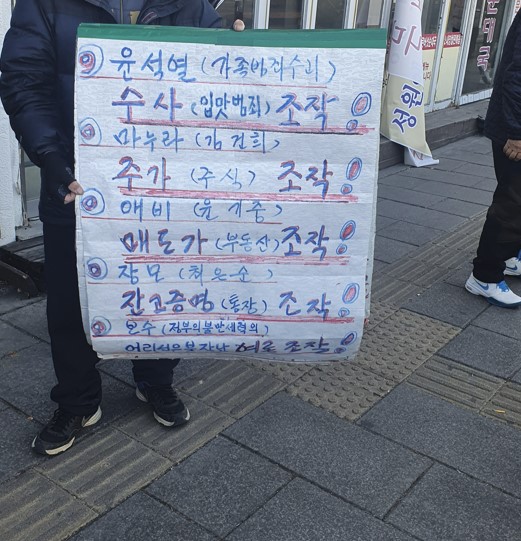 윤석열 (가족범죄수괴)
수사 (입맛범죄) 조작!
마누라 (김건희)
주가 (주식) 조작!
애비 (윤기중)
매도가 (부동산) 조작!
장모 (최은순)
잔고증명 (통장) 조작!
(정부의불만세력의)
여론 조작!